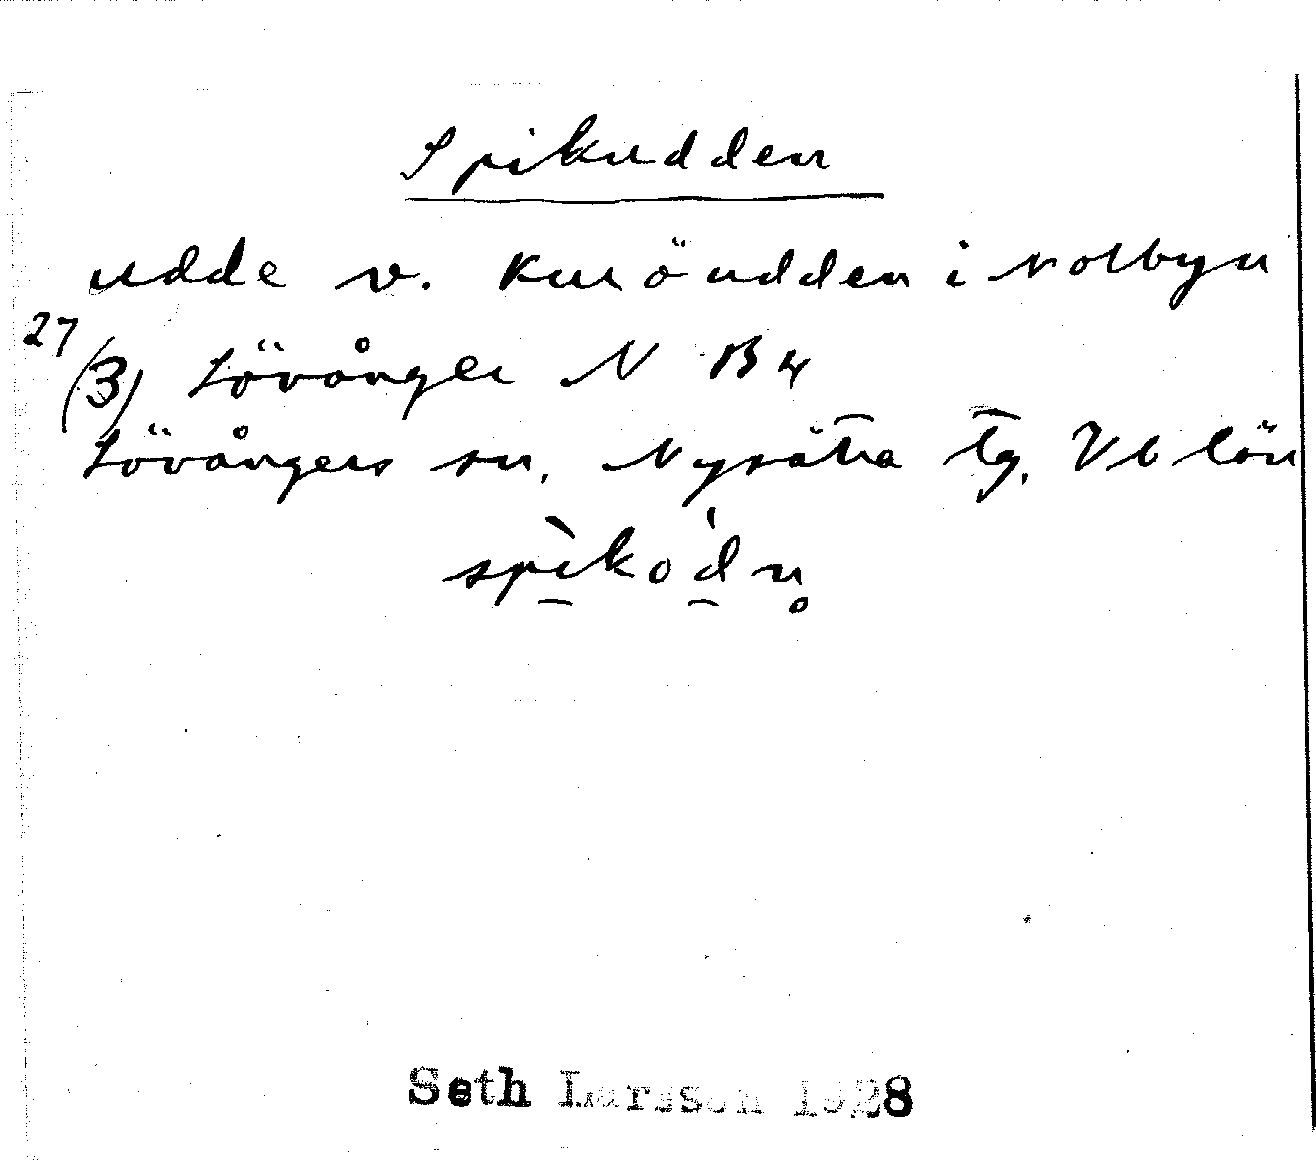 Spikudden
udde v. Kuröudden i Norrbyn
27
(3) Lövånger N B 4
Lövångers sn, Nysätra tg, Vb län
spìko̍dn̥
Seth Larsson 1928